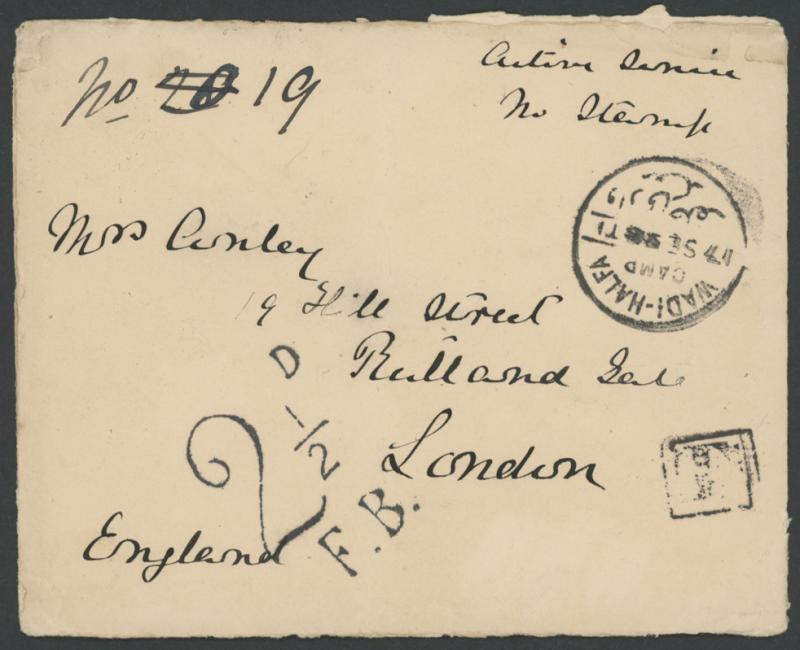 No 19
Active Service
No Stamp
وادى حلفا
WADI-HALFA
CAMP
17 SE 98 T1
Mrs Conley
19 Hill Street
Rutland Gate
London
England
2 1/2 D
F.B.